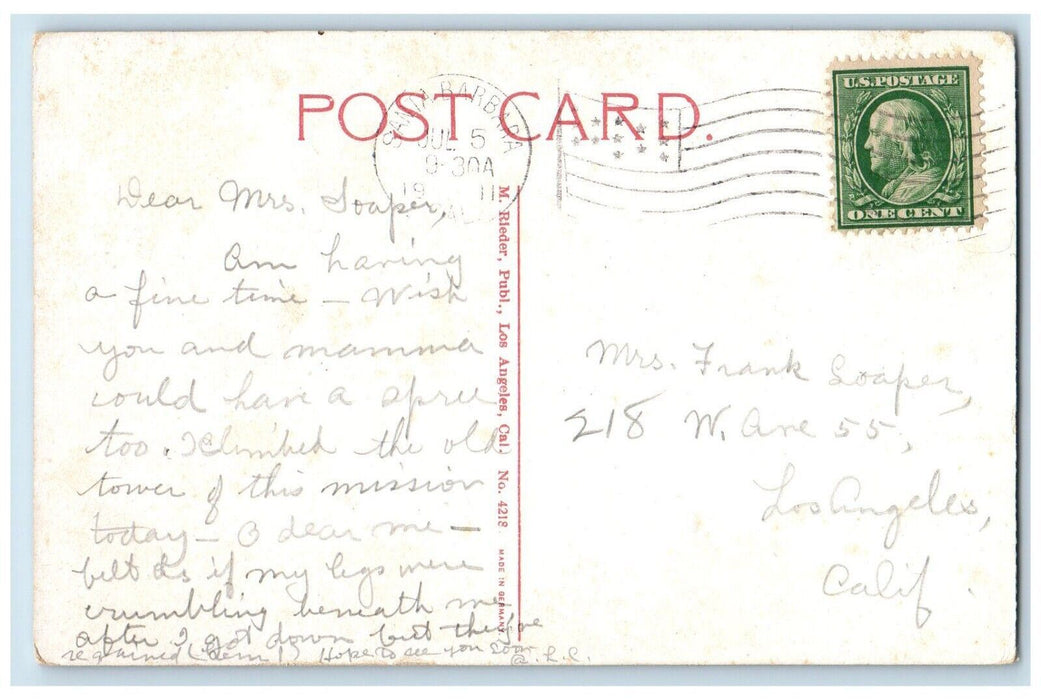 POST CARD.
SANTA BARBARA
JUL 5
9-30A
1911
CAL
U.S. POSTAGE
ONE CENT
Dear Mrs. Soaper,
Am having
a fine time – Wish
you and mamma
could have a spree
too. I climbed the old
tower of this mission
today – O dear me –
felt as if my legs were
crumbling beneath me
after I got down but they've
regained (them!) Hope to see you soon
R.C.
M. Rieder, Publ., Los Angeles, Cal. No. 4218
MADE IN GERMANY
Mrs. Frank Soaper,
218 W. Ave 55,
Los Angeles,
Calif.